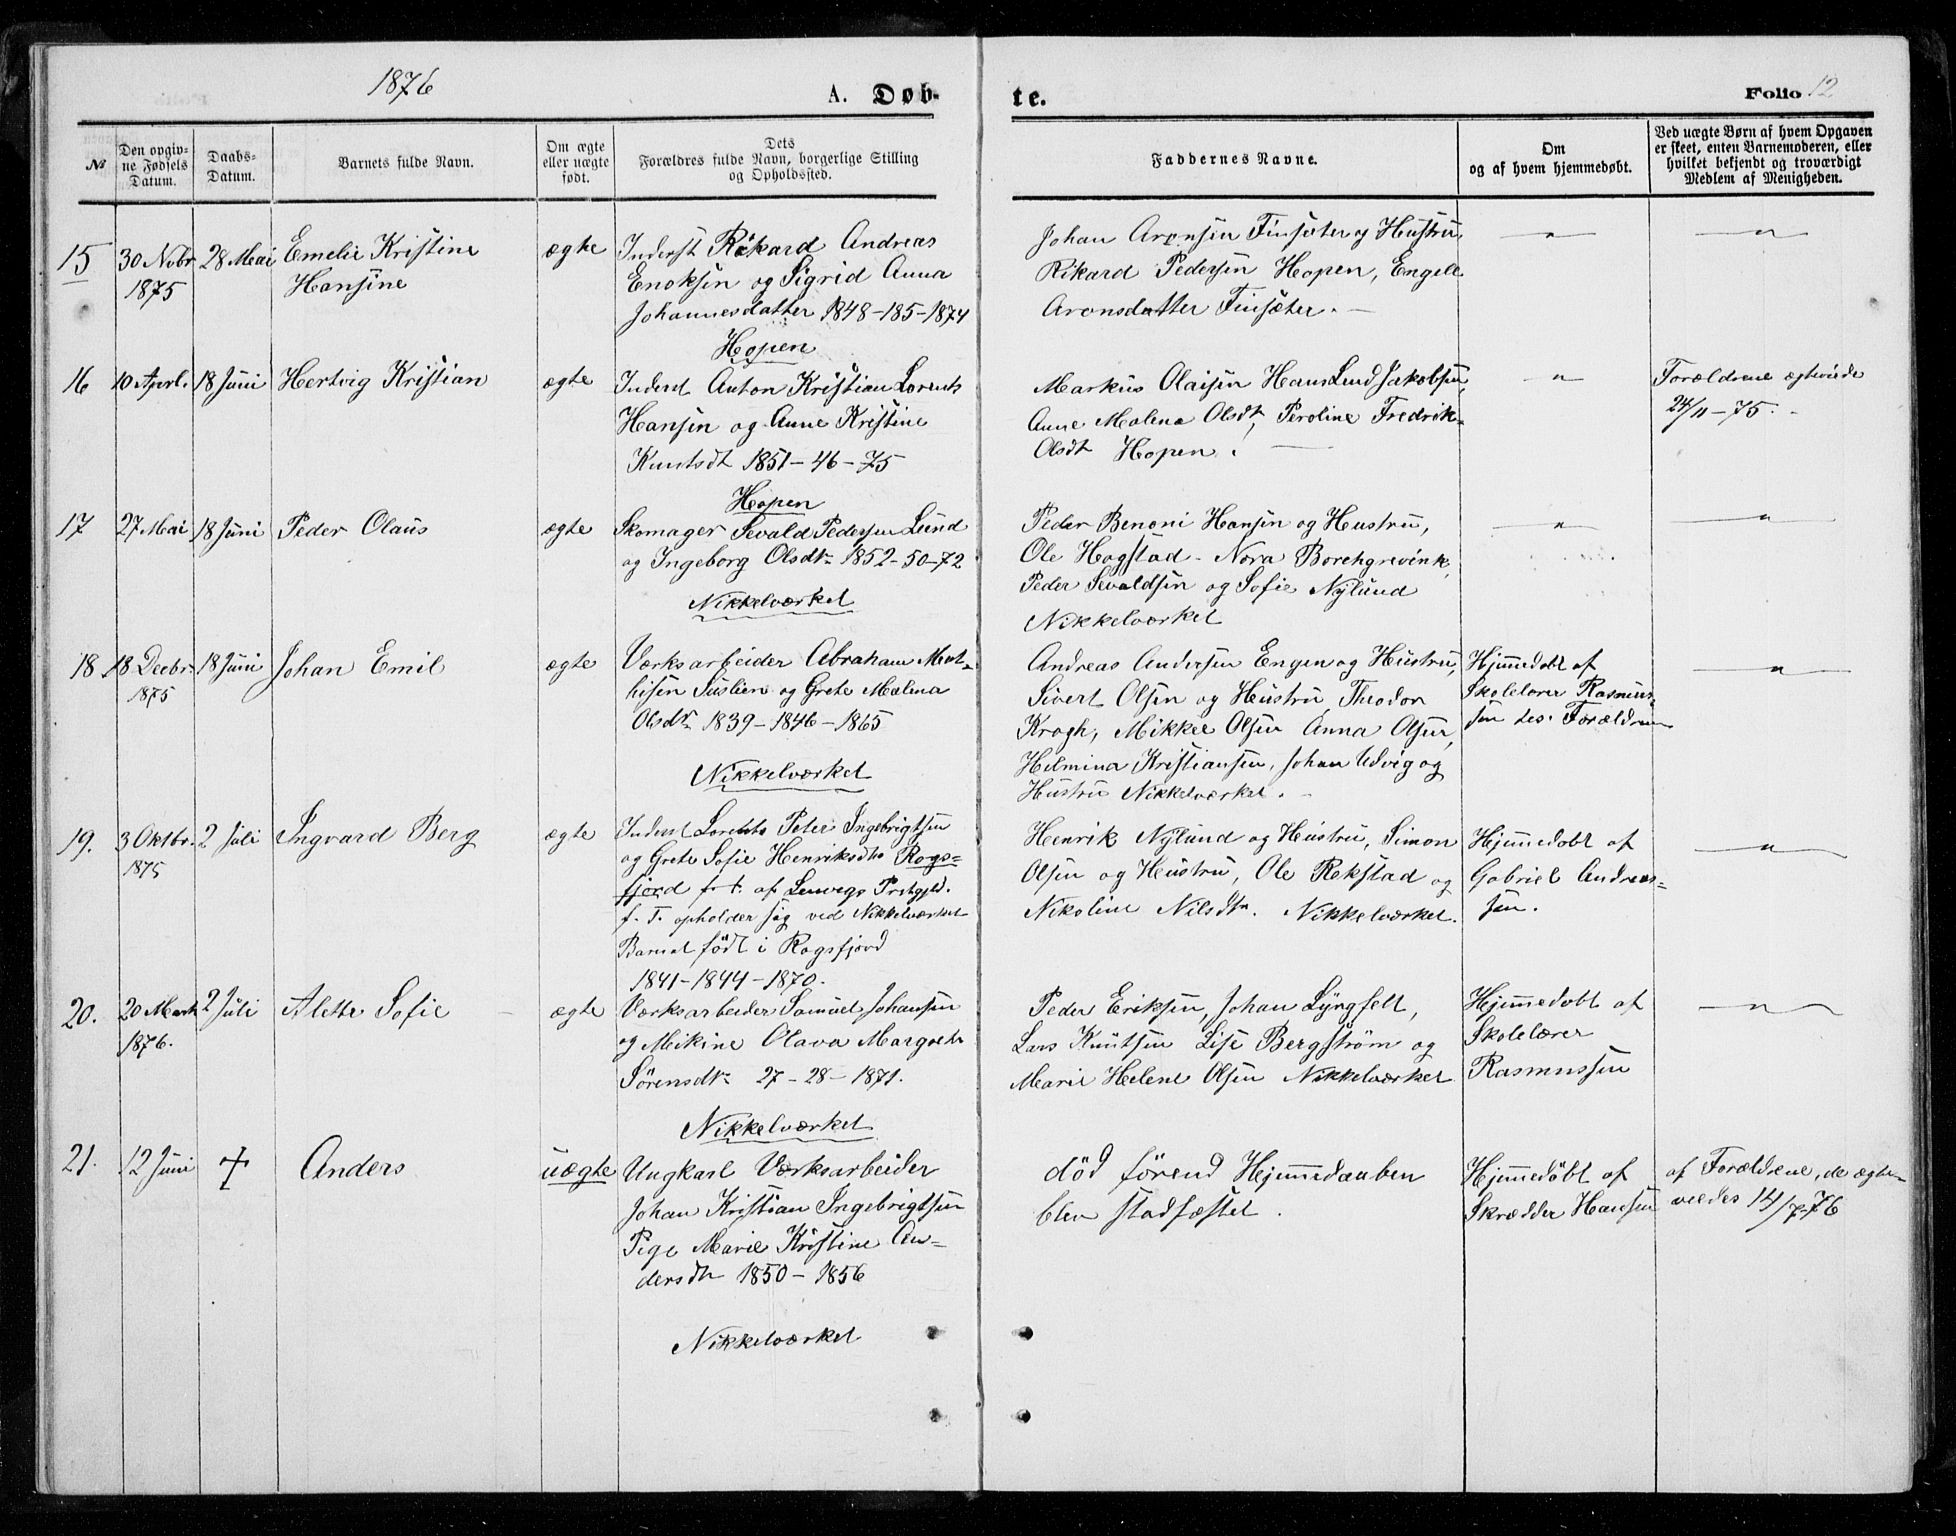 1876
A. Døb-
te.
Folio 12
№
Den opgiv-
ne Fødsels
Datum.
Daabs-
Datum.
Barnets fulde Navn.
Om ægte
eller uægte
født.
Dets
Forældres fulde Navn, borgerlige Stilling
og Opholdssted.
Faddernes Navne.
Om
og af hvem hjemmedøbt.
Ved uægte Børn af hvem Opgaven
er skeet, enten Barnemoderen, eller
hvilket bekjendt og troværdigt
Medlem af Menigheden.
15
30 Nobr
1875
28 Mai
Emelie Kristine
Hansine
ægte
Inderst Rikard Andreas
Enoksen og Sigrid Anna
Johannesdatter 1848-185-1874
Hopen
Johan Aronsen Finsæter og Hustru,
Rikard Pedersen Hopen, Engel
Aronsdatter Finsæter. —
— " —
— " —
16
10 Aprl.
18 Juni
Hertvig Kristian
ægte
Inderst Anton Kristian Lorents
Hansen og Anne Kristine
Knutsdt 1851-46-75
Hopen
Markus Olaisen Hans Lind Jakobsen,
Anne Malena Olsdt, Peroline Fredrik-
Olsdt Hopen. —
— " —
Forældrene ægteviede
24/11-75.
17
27 Mai
18 Juni
Peder Olaus
ægte
Skomager Sevald Pedersen Lund
og Ingeborg Olsdtr 1852-50-72
Nikkelværket
Peder Benoni Hansen og Hustru,
Ole Hogstad - Nora Borchgrevink,
Peder Sevaldsen og Sofie Nylund
Nikkelværket
— " —
— " —
18
18 Decbr.
1875
18 Juni
Johan Emil
ægte
Værksarbeider Abraham Mat-
hisen Suslien og Grete Malena
Olsdtr 1839-1846-1865
Nikkelværket
Andreas Andersen Engen og Hustru,
Sivert Olsen og Hustru, Theodor
Krogh, Mikkel Olsen Anna Olsen,
Helmina Kristiansen, Johan Udvig og
Hustru Nikkelværket. -
Hjemmedøbt af
Skolelærer Rasmus-
sen des. Forældrene
— " —
19.
3 Oktbr.
1875
2 Juli
Ingvard Berg
ægte
Inderst Lorents Peter Ingebrigtsen
og Grete Sofie Henriksdtr Rogs-
fjord f. t. af Lenvigs Prstgjld.
f. T. opholder sig ved Nikkelværket
Barnet født i Rogsfjord
1841-1844-1870.
Henrik Nylund og Hustru, Simon
Olsen og Hustru, Ole Rekstad og
Nikoline Nilsdtr. Nikkelværket.
Hjemmedøbt af
Gabriel Andreas-
sen.
— " —
20.
20 Marts
1876.
2 Juli
Alette Sofie
ægte
Værksarbeider Samuel Johansen
og Mikine Olava Margrete
Sørensdtr 27-28-1871.
Nikkelværket
Peder Eriksen, Johan Lyngfelt,
Lars Knutsen Lise Bergstrøm og
Marie Helene Olsen Nikkelværket
Hjemmedøbt af
Skolelærer
Rasmussen
— " —
21.
12 Juni
+
Anders
uægte
Ungkarl Værksarbeider
Johan Kristian Ingebrigtsen
Pige Marie Kristine An-
dersdtr 1850-1856
Nikkelværket
død førend Hjemmedaaben
blev stadfæstet.
Hjemmedøbt af
Skrædder Hansen
af Forældrene, de ægte-
viedes 14/7-76